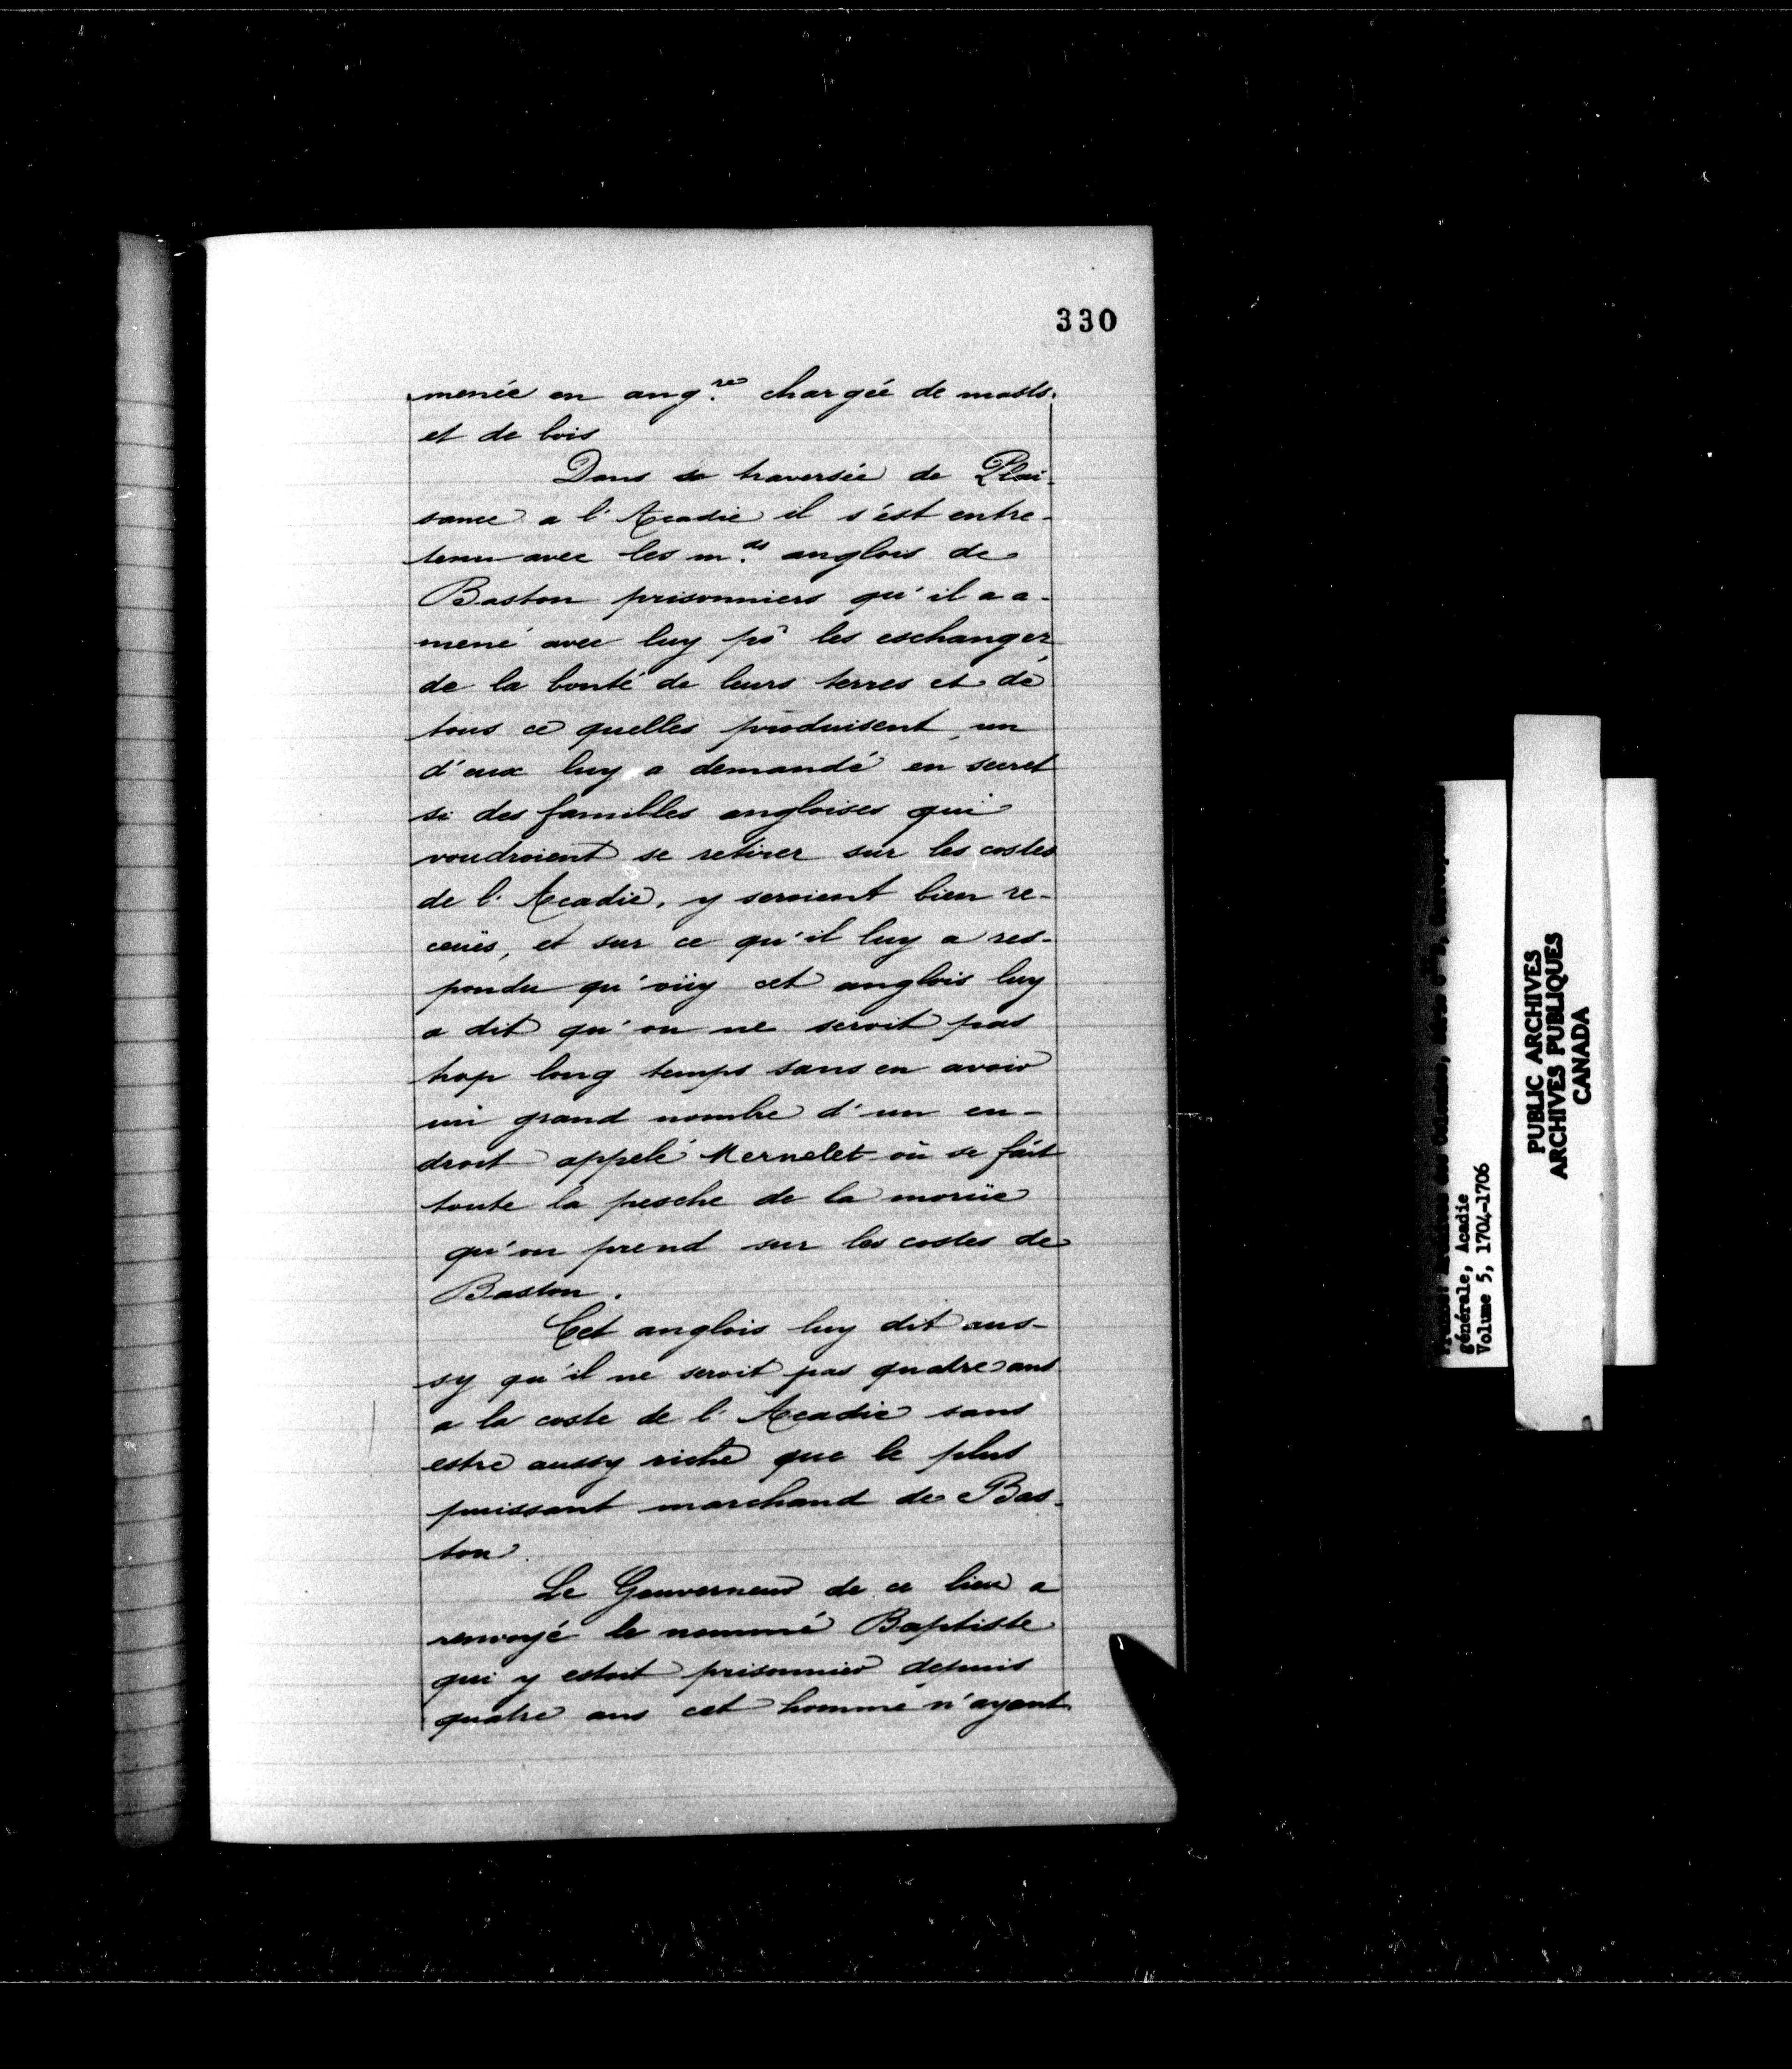 330
menée en ang.re chargée de masts
et de bois
Dans sa traversée de Plai-
sance a l'Acadie il s'est entre-
tenu avec les m.ds anglois de
Baston prisonniers qu'il a a-
mené avec luy pr les eschanger
de la bonté de leurs terres et de
tous ce quelles produisent, un
d'eux luy a demandé en secret
si des familles angloises qui
voudroient se retirer sur les costes
de l'Acadie, y seroient bien re-
ceües, et sur ce qu'il luy a res-
pondu qu'oüy cet anglois luy
a dit qu'on ne seroit pas
trop long temps sans en avoir
un grand nombre d'un en-
droit appelé Mernelet où se fait
toute la pesche de la moruë
qu'on prend sur les costes de
Baston.
Cet anglois luy dit aus-
sy qu'il ne seroit pas quatre ans
a la coste de l'Acadie sans
estre aussy riche que le plus
puissant marchand de Bas-
ton.
Le Gouverneur de ce lieu a
renvoyé le nommé Baptiste
qui y estoit prisonnier depuis
quatre ans cet homme n'ayant
générale, Acadie
Volume 5, 1704-1706
PUBLIC ARCHIVES
ARCHIVES PUBLIQUES
CANADA